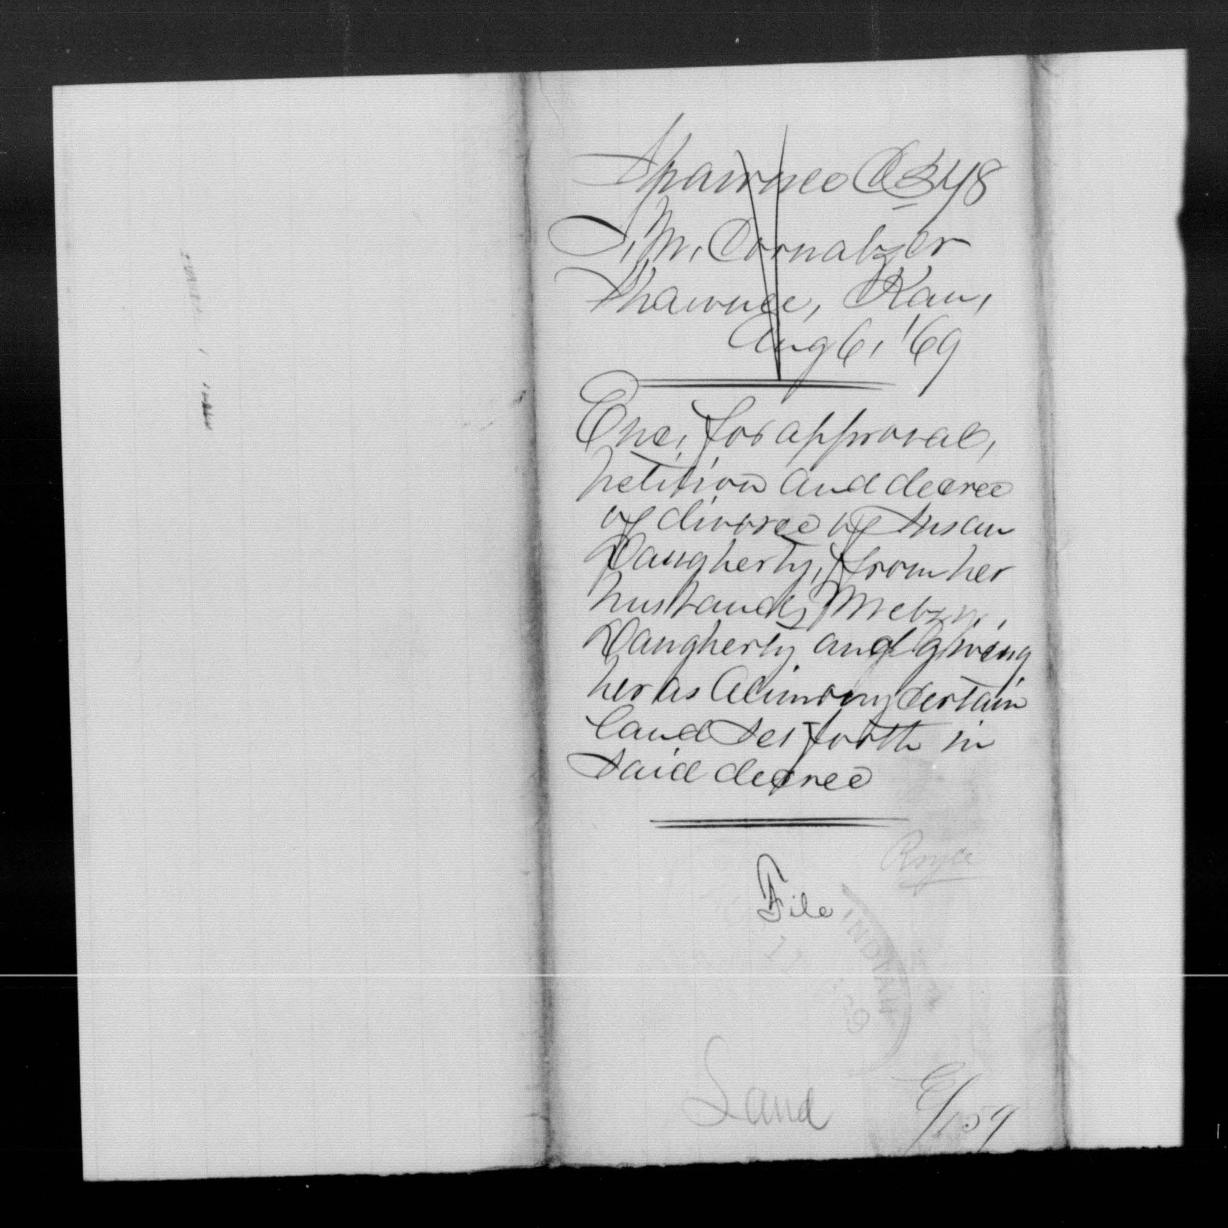 Shawnee C 348
S. M. Cornatzer
Shawnee, Kan,
Aug 6, '69
Enc, for approval,
petition and decree
of divorce of Susan
Daugherty, from her
husband,
Daugherty and giving
her as Alimony Certain
land set forth in
said decree
Royce
File
INDIAN
11
Land